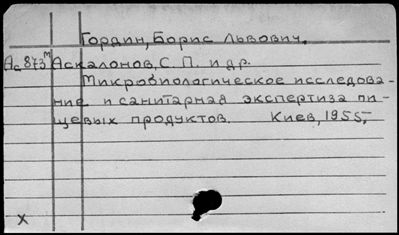 Гордин, Борис Львович.
Ас873м Аскалонов, С. П. и др.
Микробиологическое исследова-
ние и санитарная экспертиза пи-
щевых продуктов. Киев, 1955,-
x